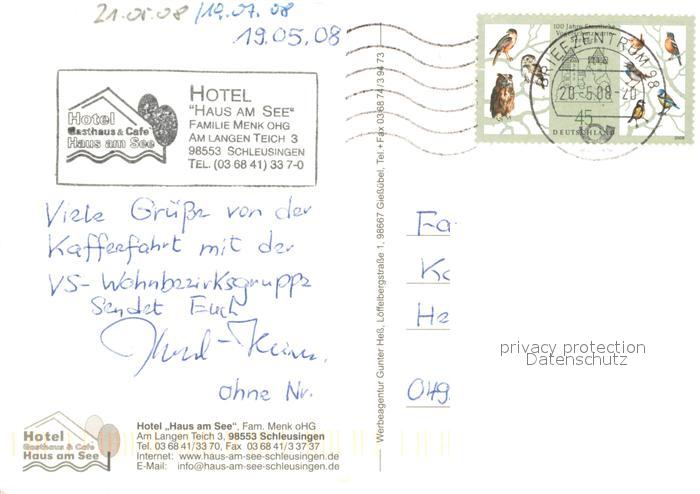 21.05.08 /19.07.08
19.05.08
Hotel
Gasthaus & Cafe
Haus am See
HOTEL
"HAUS AM SEE"
FAMILIE MENK OHG
AM LANGEN TEICH 3
98553 SCHLEUSINGEN
TEL. (03 68 41) 33 7-0
Viele Grüße von der
Kaffeefahrt mit der
VS-Wohnbezirksgruppe
Sendet Euch
ohne Nr.
Hotel
Gasthaus & Cafe
Haus am See
Hotel „Haus am See", Fam. Menk oHG
Am Langen Teich 3, 98553 Schleusingen
Tel. 03 68 41/33 70, Fax 03 68 41/3 37 37
Internet: www.haus-am-see-schleusingen.de
E-Mail: info@haus-am-see-schleusingen.de
Werbeagentur Gunter Heß, Löffelbergstraße 1, 98667 Gießübel, Tel.+Fax 03 68 74/3 94 73
100 Jahre Staatliche
Vogelschutzwarten
BRIEFZENTRUM 98
20.5.08-20
45
DEUTSCHLAND
2008
Fa
Ko
He
049
privacy protection
Datenschutz